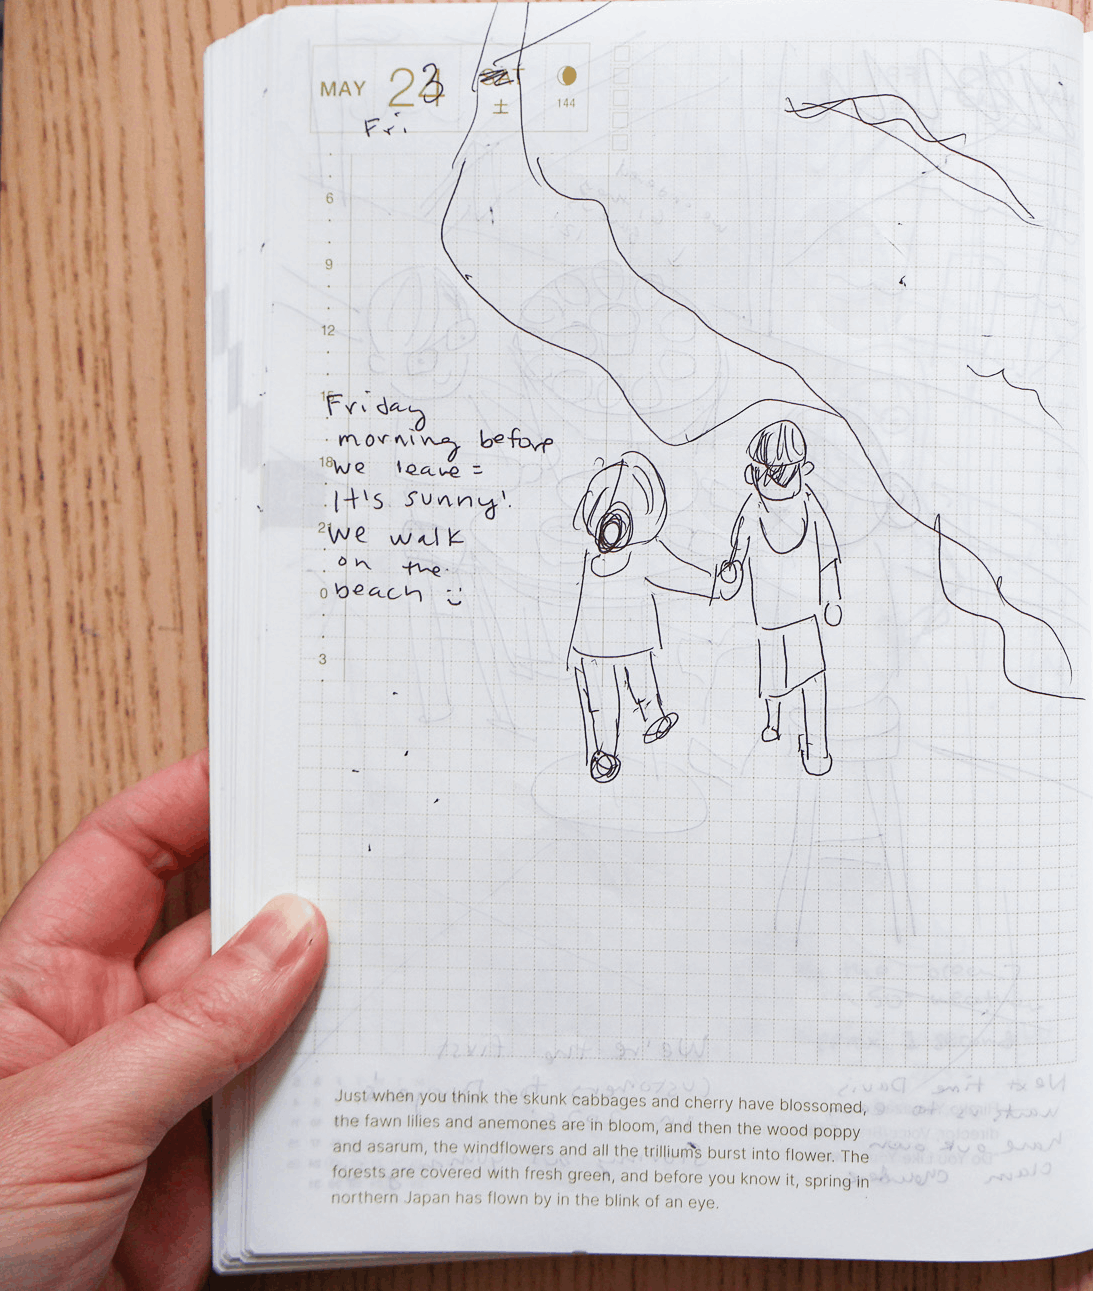 MAY 23
土
144
Fri
6
9
12
15
Friday
morning before
18
we leave =
It's sunny!
21
we walk
on the
0
beach :)
3
We're the first
Next time Davis
Just when you think the skunk cabbages and cherry have blossomed,
the fawn lilies and anemones are in bloom, and then the wood poppy
and asarum, the windflowers and all the trilliums burst into flower. The
forests are covered with fresh green, and before you know it, spring in
northern Japan has flown by in the blink of an eye.